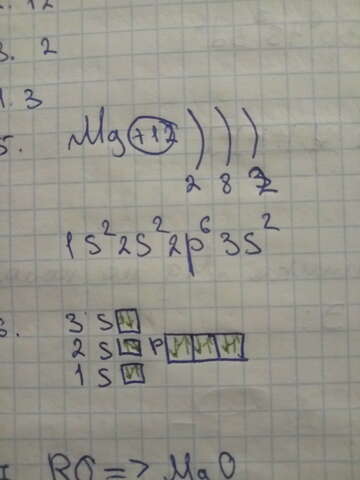 12
3. 2
4. 3
5. Mg +12 ) ) )
2 8 2
1s²2s²2p⁶3s²
6. 3 s
2 s p
1 s
RO => MgO